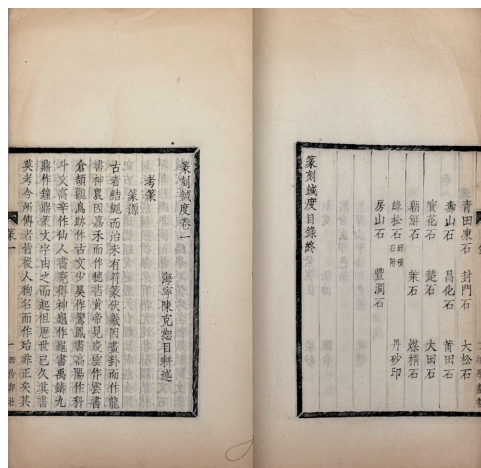 青田凍石 封門石 大松石
壽山石 昌化石 莆田石
寶花石 楚石 大田石
朝鮮石 萊石 煤精石
綠松石 丹砂印
房山石 豐潤石
篆刻鍼度目錄終
篆刻鍼度卷一
海寧陳克恕目耕述
考篆
篆源
古者結繩而治未有符篆伏羲因畫卦而作龍
書神農因嘉禾而作穗書黃帝見慶雲作雲書
倉頡觀鳥跡作古文少昊作鸞鳳書高陽作科
斗文高辛作仙人書堯得神龜作龜書禹鑄九
鼎作鐘鼎文字由之而起但歷世已久其書
莫考今所傳者皆後人物名而作殆非正矣其
篆一
一